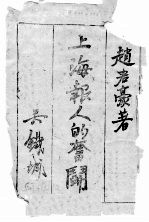 趙君豪著
上海報人的奮鬪
吳鐵城